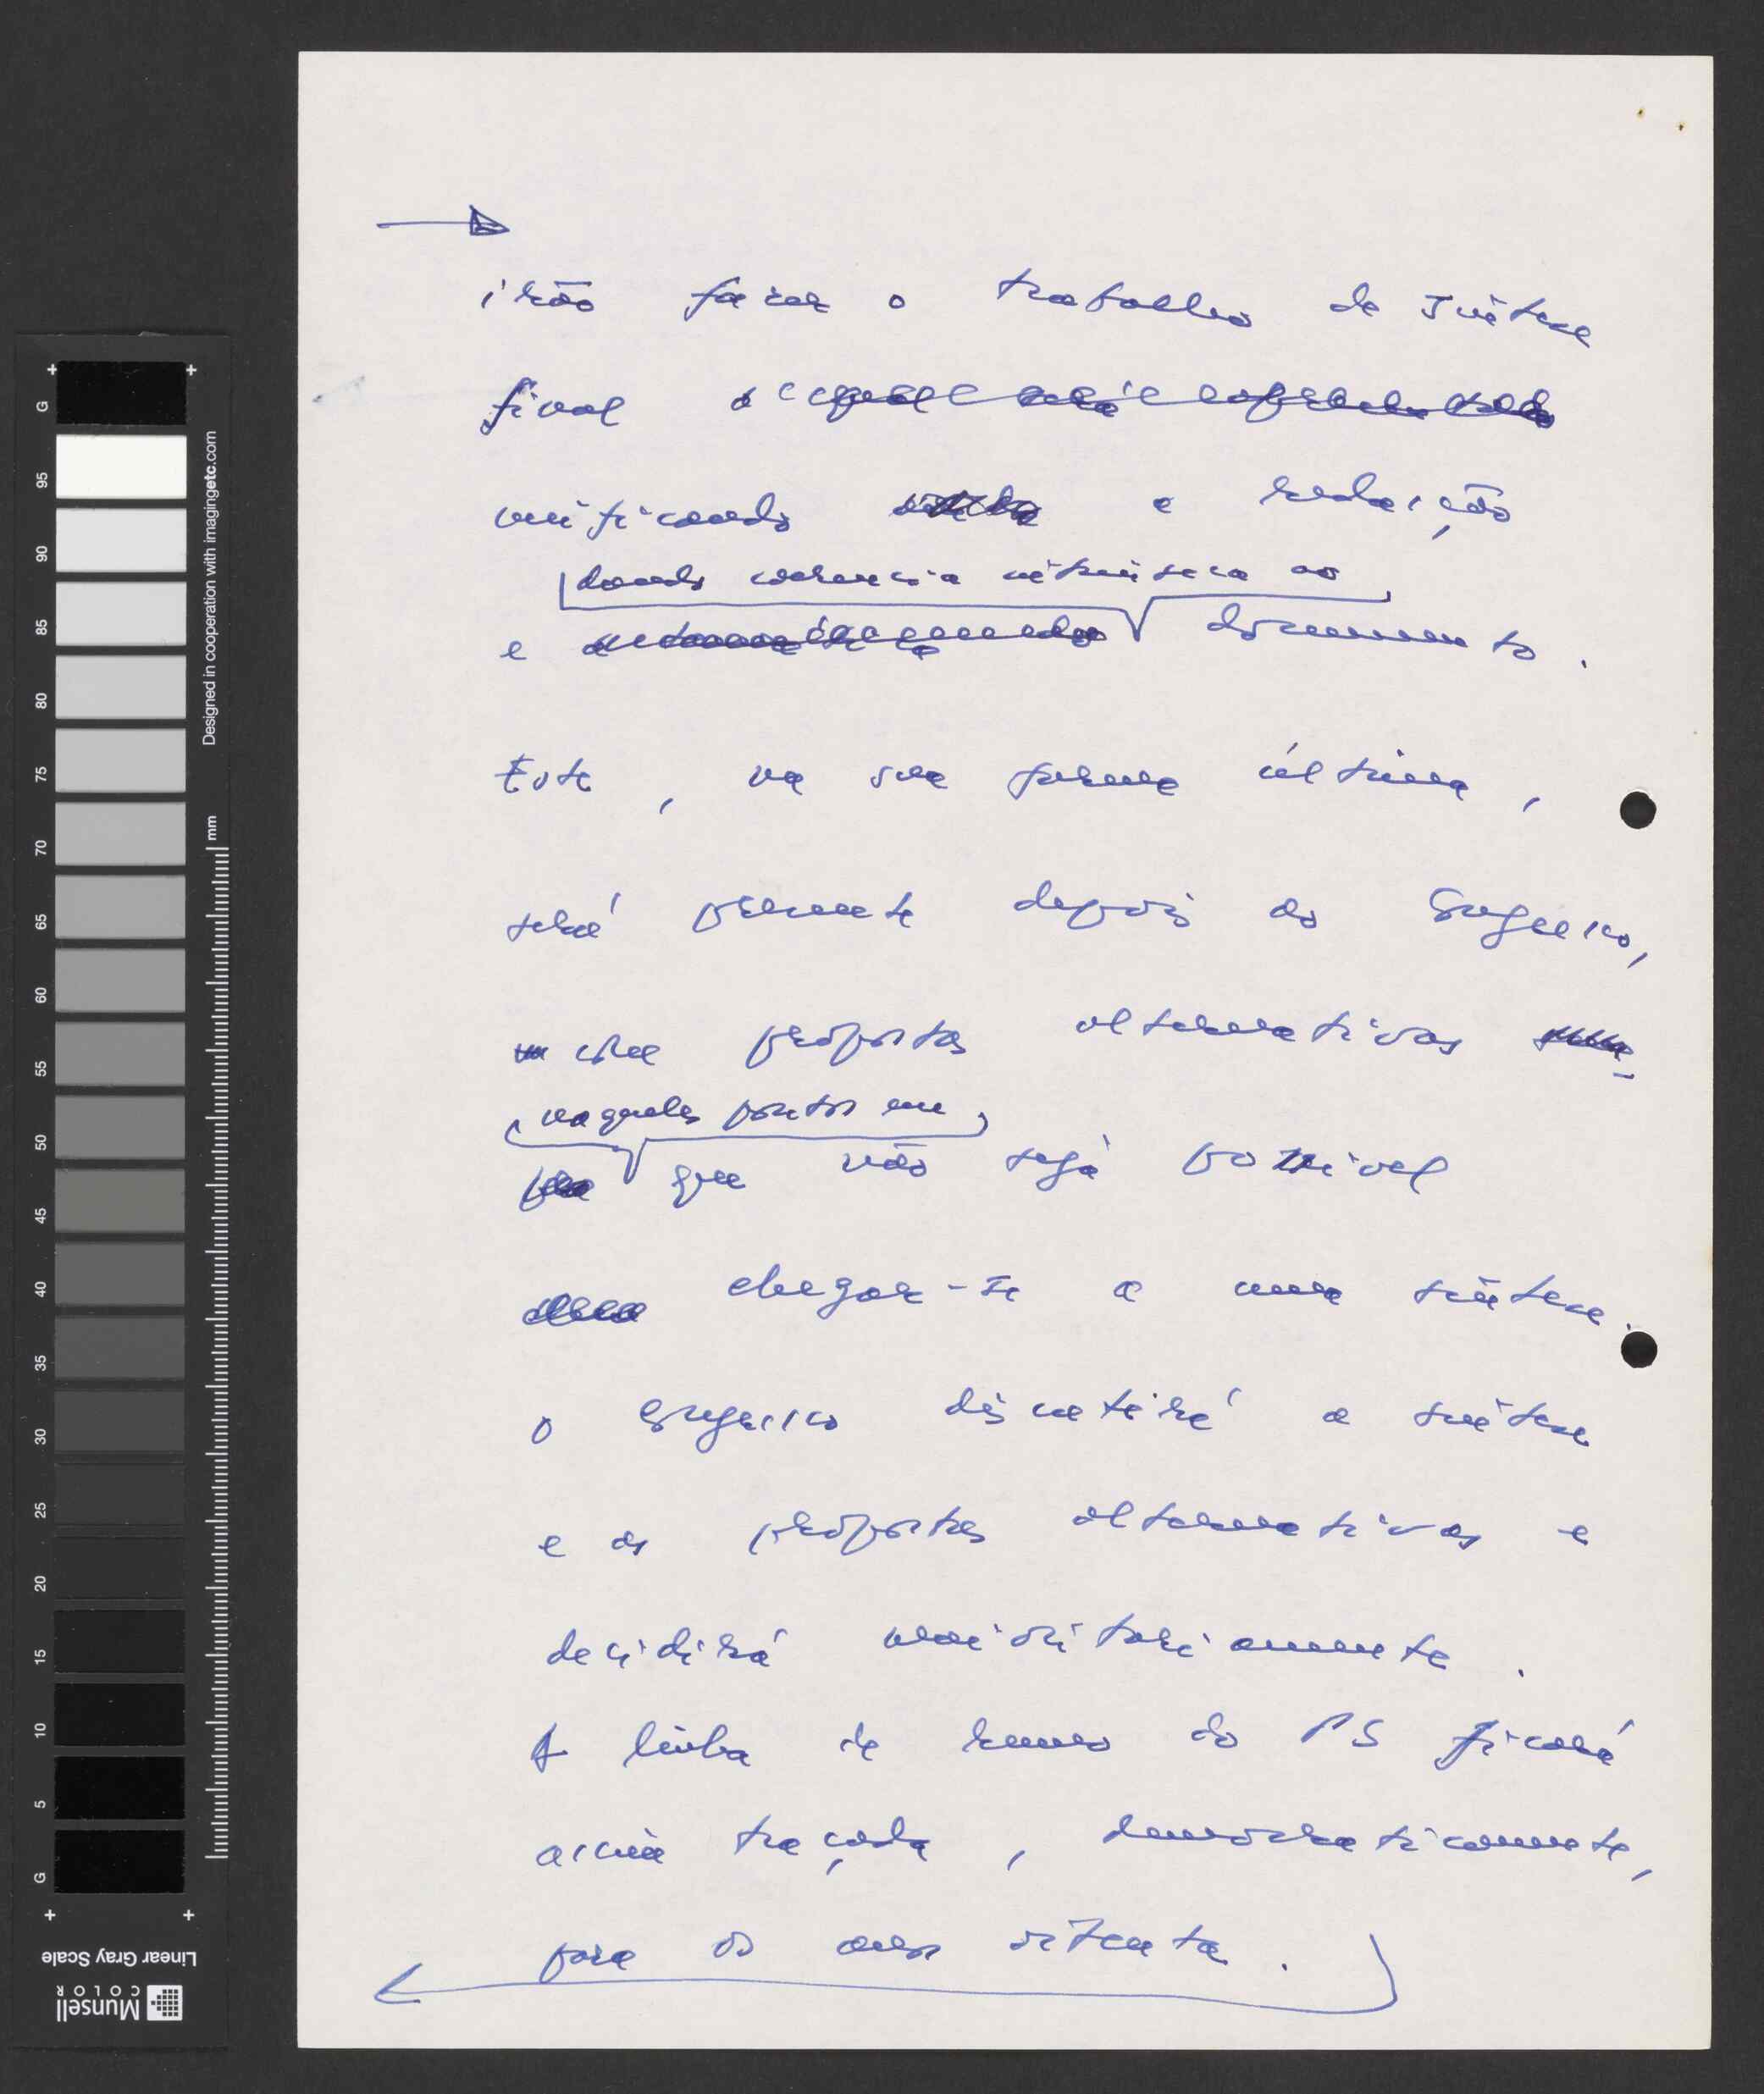 irão fazer o trabalho de síntese
final
unificando a redacção
dando coerencia intrínseca ao
e documento.
Este, na sua forma última,
será presente depois ao Congresso,
com propostas alternativas
naqueles pontos em
que não seja possivel
chegar-se a uma síntese.
O Congresso discutirá a síntese
e as propostas alternativas e
decidirá maioritariamente.
A linha de rumo do PS ficará
assim traçada, democraticamente,
para os anos oitenta.
G
95
90
85
80
75
70
65
60
55
50
45
40
35
30
25
20
15
10
5
G
Designed in cooperation with imagingetc.com
mm
Linear Gray Scale
Munsell
COLOR